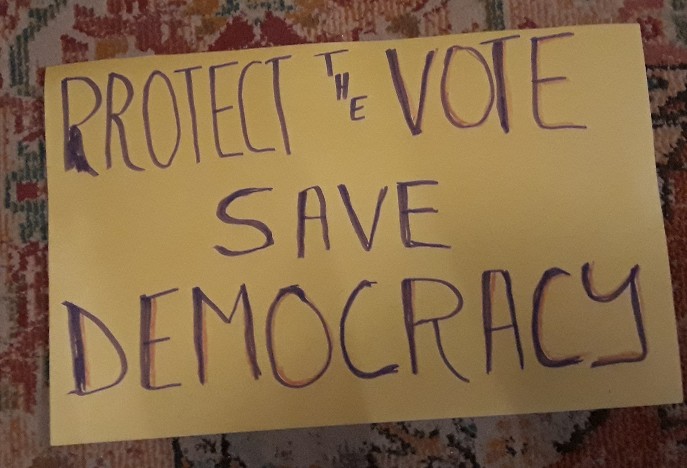 PROTECT THE VOTE
SAVE
DEMOCRACY